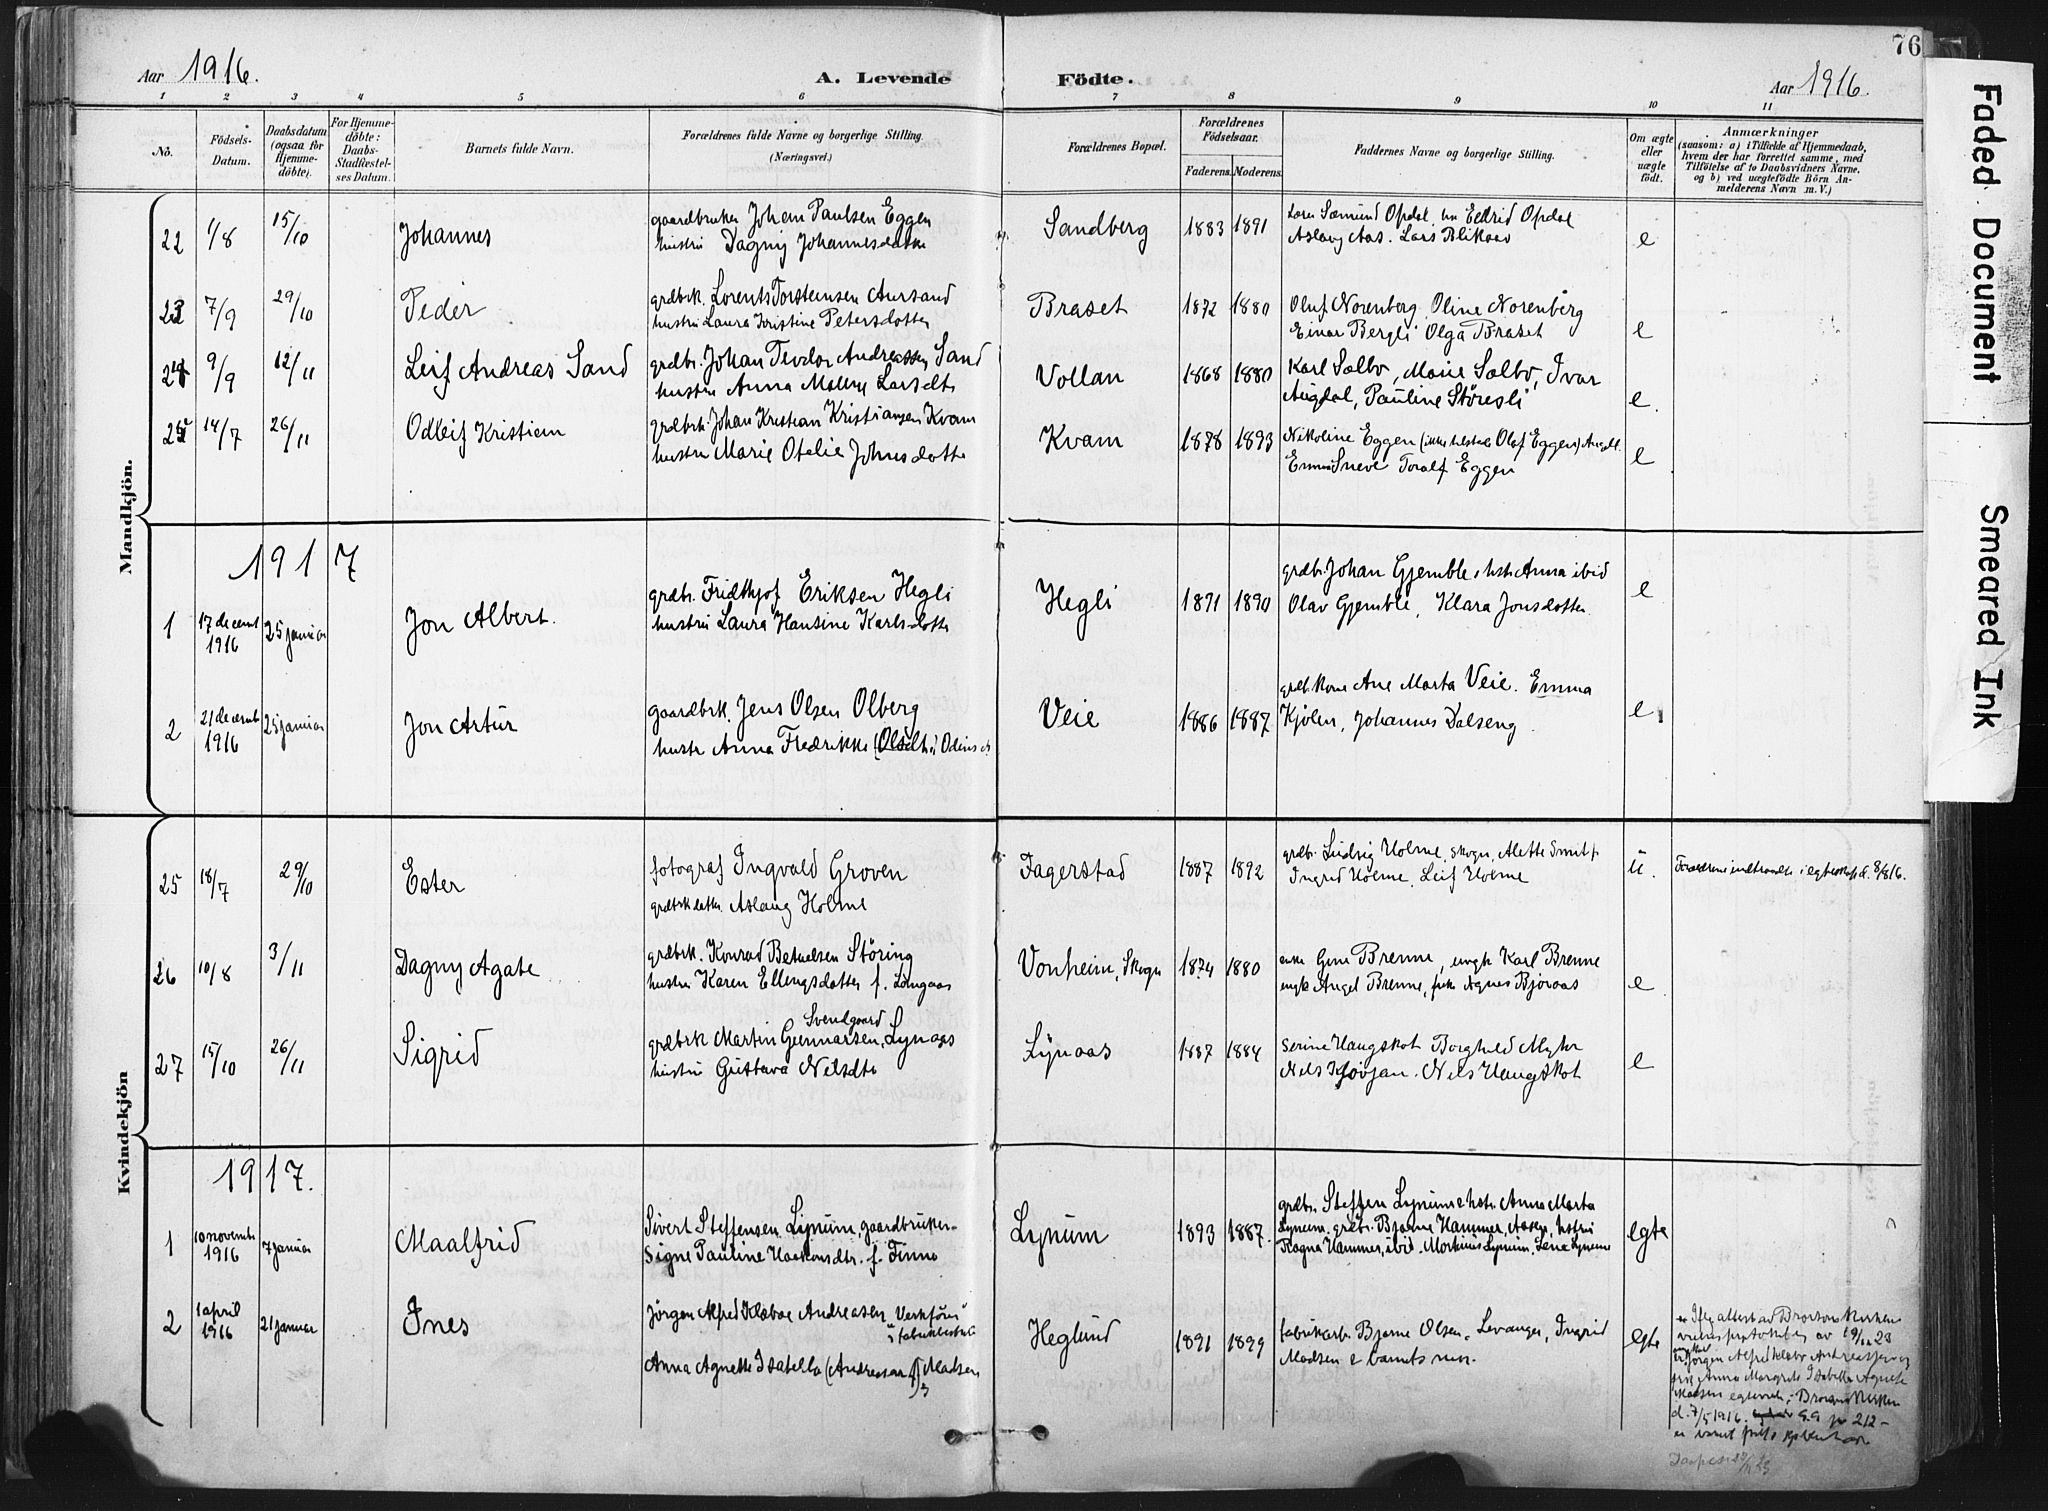 76
Aar 1916.
A. Levende Födte.
Aar 1916.
1 2 3 4 5 6 7 8 9 10 11
No.
Födsels-Datum.
Daabsdatum (ogsaa for Hjemme-döbte).
For Hjemme-döbte: Daabs-Stadfæstel-ses Datum.
Barnets fulde Navn.
Forældrenes fulde Navne og borgerlige Stilling. (Næringsvei.)
Forældrenes Bopæl.
Forældrenes Födselsaar.
Faderens. Moderens.
Faddernes Navne og borgerlige Stilling.
Om ægte eller uægte födt.
Anmærkninger
(saasom: a) i Tilfælde af Hjemmedaab,
hvem der har forrettet samme, med
Tilföielse af to Daabsvidners Navne.
og b) ved uægtefödte Börn An-
melderens Navn m. V.)
Mandkjön.
22 1/8 15/10 Johannes
gaardbruker Johan Paulsen Eggen
hustru Dagny Johannesdatter
Sandberg 1883 1891
Sæmund Opdal, Eldrid Opdal
Aslaug Aas. Lars Blikaas
e
23 7/9 29/10 Peder
grdbrk. Lorents Torsteinsen Aursand
hustru Laura Kristine Petersdotter
Braset 1872 1880
Oluf Norenberg, Oline Norenberg
Einar Bergli Olga Braset
e
24 9/9 12/11 Leif Andreas Sand
grdbr. Johan Teodor Andreassen Sand
hustru Anna Larsdtr
Vollan 1868 1880
Karl Salbo, Marie Salbo, Ivar
Augdal, Pauline Störesli
e.
25 14/7 26/11 Odleif Kristian
grdbrk. Johan Kristian Kristiansen Kvam
hustru Marie Otelie Johnsdotter
Kvam 1878 1893
Nikoline Eggen (ikke tilstede Olaf Eggen)
Emma Sneve Toralf Eggen
e
1917
1 17 decemb 1916 25 januar Jon Albert.
grdbr. Fridthjof Eriksen Hegli
hustru Laura Hansine Karlsdotter
Hegli 1891 1890
grdbr. Johan Gjemble, hst. Anna ibid
Olav Gjemble, Klara Jonsdotter
e
2 21 decemb 1916 25 januar Jon Artur
gaardbrk. Jens Olsen Olberg
hustr Anna Fredrikke (Olsdtr.) Odins
Veie 1886 1887
grdb. kone Ane Marta Veie. Emma
Kjölen, Johannes Dalseng
e
Kvindekjön
25 18/7 29/10 Ester
fotograf Ingvald Groven
grdbrk datter. Aslaug Holme
Fagerstad 1887 1892
grdbr. Ludvig Holme, Skogn, Alette
Ingrid Holme, Leif Holme
u.
Forældrene indtraadte i egteskap d. 8/8 16.
26 10/8 3/11 Dagny Agate
grdbrk. Konrad Betuelsen Störing
hustru Karen Ellingsdatter f. Lungaas
Vonheim, Skogn 1874 1880
enke Gine Brenne, ungk Karl Brenne
ungk Angel Brenne, Agnes Björaas
e
27 15/10 26/11 Sigrid
Svendgaard
grdbrk Martin Gunnarsen, Lynaas
hustru Gustava Nelsdtr
Lynaas 1887 1884
Serine Haugskot Borghild Myhr
Nels Haugskot
e
1917.
1 10 novemb 1916 7 januar Maalfrid
Sivert Steffensen Lynum, gaardbruker-
Signe Pauline Haakonsdtr. f. Finno
Lynum 1893 1887.
grdbr. Steffen Lynum & hstr. Anna Marta
Lynum, grdbr. Bjarne Hammer, Aasen, hustru
Ragna Hammer, ibid. Martinus Lynum. Lena Lynum
egte
2 1 april 1916 21 januar Ines
Jörgen Alfred Klæboe Andreasen "Verkförer"
i
Anna Agnette Isabella (Andreasen f) Madsen
Heglund 1891 1899
fabrikarb. Bjarne Olsen, Levanger, Ingrid
Madsen & barnets mor.
egte
Iflg. attest av Brorson Kirkens
av 19/11 23
Jörgen Alfred Klæbo Andreassen og
Anna Margrete Isabella Agnete
Madsen egteviet i Brorsons Kirken
d. 7/5 1916. S.9 212-
Faded Document Smeared Ink